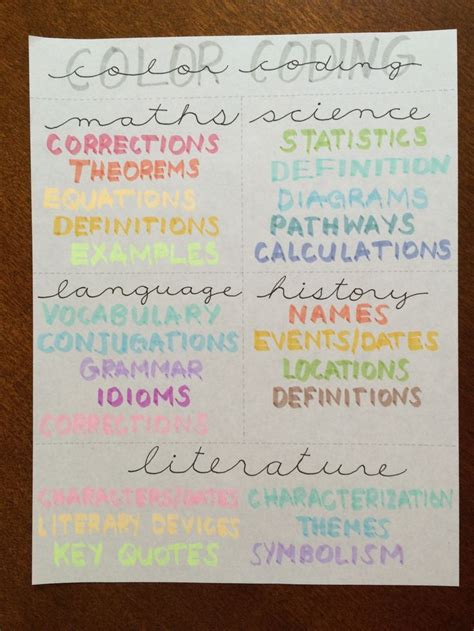 color coding
maths
CORRECTIONS
THEOREMS
EQUATIONS
DEFINITIONS
EXAMPLES
science
STATISTICS
DEFINITION
DIAGRAMS
PATHWAYS
CALCULATIONS
language
VOCABULARY
CONJUGATIONS
GRAMMAR
IDIOMS
CORRECTIONS
history
NAMES
EVENTS/DATES
LOCATIONS
DEFINITIONS
literature
CHARACTERS/DATES
LITERARY DEVICES
KEY QUOTES
CHARACTERIZATION
THEMES
SYMBOLISM